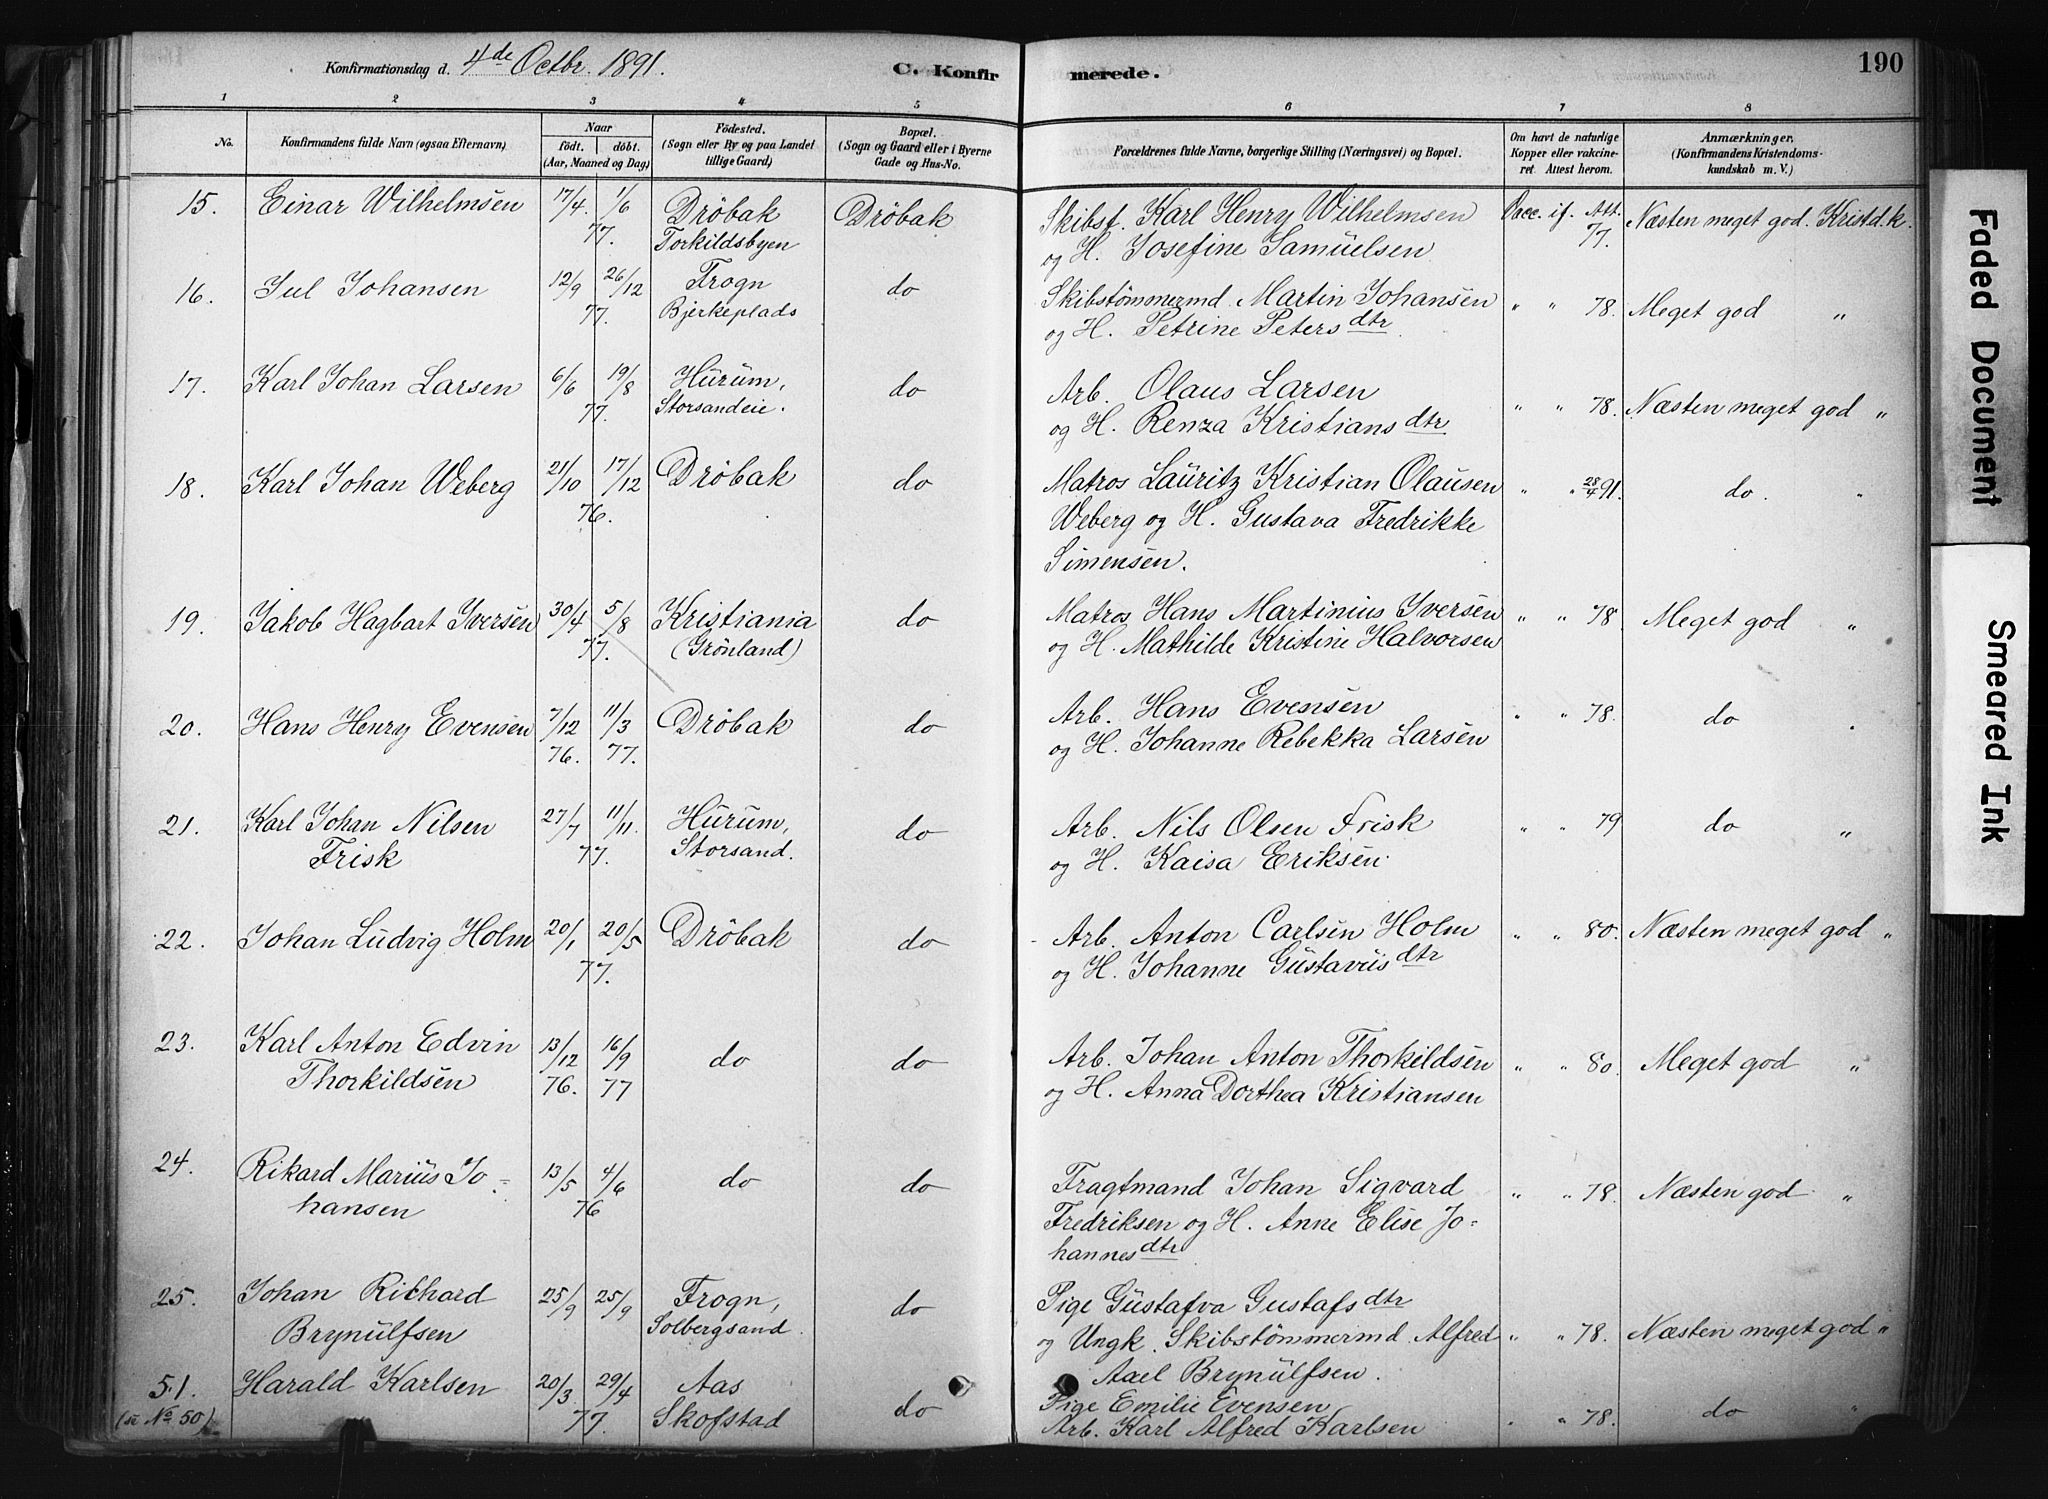 Konfirmationsdag d. 4de Octbr. 1891. C. Konfirmerede. 190
1 2 3 4 5 6 7 8
No. Konfirmandens fulde Navn (ogsaa Efternavn) Naar födt. döbt. (Aar, Maaned og Dag) Födested. (Sogn eller By og paa Landet tillige Gaard) Bopæl. (Sogn og Gaard eller i Byerne Gade og Hus-No. Forældrenes fulde Navne, borgerlige Stilling (Næringsvei) og Bopæl. Om havt de naturlige Kopper eller vakcineret. Attest herom. Anmærkninger. (Konfirmandens Kristendomskundskab m. V.)
15. Einar Wilhelmsen 17/4. 1/6 Dröbak Dröbak Skibsf. Karl Henry Wilhelmsen Vacc. if. Att. Næsten meget god. Kristd.k.
77. Torkildsbyen og H. Josefine Samuelsen 77.
16. Jul Johansen 12/9 26/12 Frogn do Skibstömmermd. Martin Johansen " " 78. Meget god "
77. Bjerkeplads og H. Petrine Petersdtr
17. Karl Johan Larsen 6/6 19/8 Hurum, do Arb. Olaus Larsen " " 78. Næsten meget god "
77. Storsandeie. og H. Renza Kristiansdtr
18. Karl Johan Weberg 21/10 17/12 Dröbak do Matros Lauritz Kristian Olausen " " 28/4 91. do. "
76. Weberg og H. Gustava Fredrikke
Simensen.
19. Jakob Hagbart Iversen 30/4 5/8 Kristiania do Matros Hans Martinius Iversen " " 78. Meget god "
77. (Grönland) og H. Mathilde Kristine Halvorsen
20. Hans Henry Evensen 7/12 11/3 Dröbak do Arb. Hans Evensen " " 78. do "
76. 77. og H. Johanne Rebekka Larsen
21. Karl Johan Nilsen 27/7 11/11. Hurum, do Arb. Nils Olsen Frisk " " 79 do "
Frisk 77. Storsand. og H. Kaisa Eriksen.
22. Johan Ludvig Holm 20/1 20/5 Dröbak do Arb. Anton Carlsen Holm " " 80. Næsten meget god "
77. og H. Johanne Gustavusdtr
23. Karl Anton Edvin 13/12 16/9 do do Arb. Johan Anton Thorkildsen " " 80. Meget god "
Thorkildsen 76. 77 og H. Anna Dorthea Kristiansen
24. Rikard Marius Jo= 13/5 4/6 do do Fragtmand Johan Sigvard " " 78. Næsten god "
hansen 76 Fredriksen og H. Anne Elise Jo=
hannesdtr
25. Johan Richard 25/9 25/9 Frogn, do Pige Gustafva Gustafsdtr
Brynulfsen Solbergsand. og Ungk. Skibstömmermd Alfred " " 78. Næsten meget god "
Axel Brynulfsen.
51. Harald Karlsen 20/3 29/4 Aas do Pige Emilie Evensen " " 78. do "
(se No 50) 77. Skofstad Arb. Karl Alfred Karlsen
Faded Document
Smeared Ink